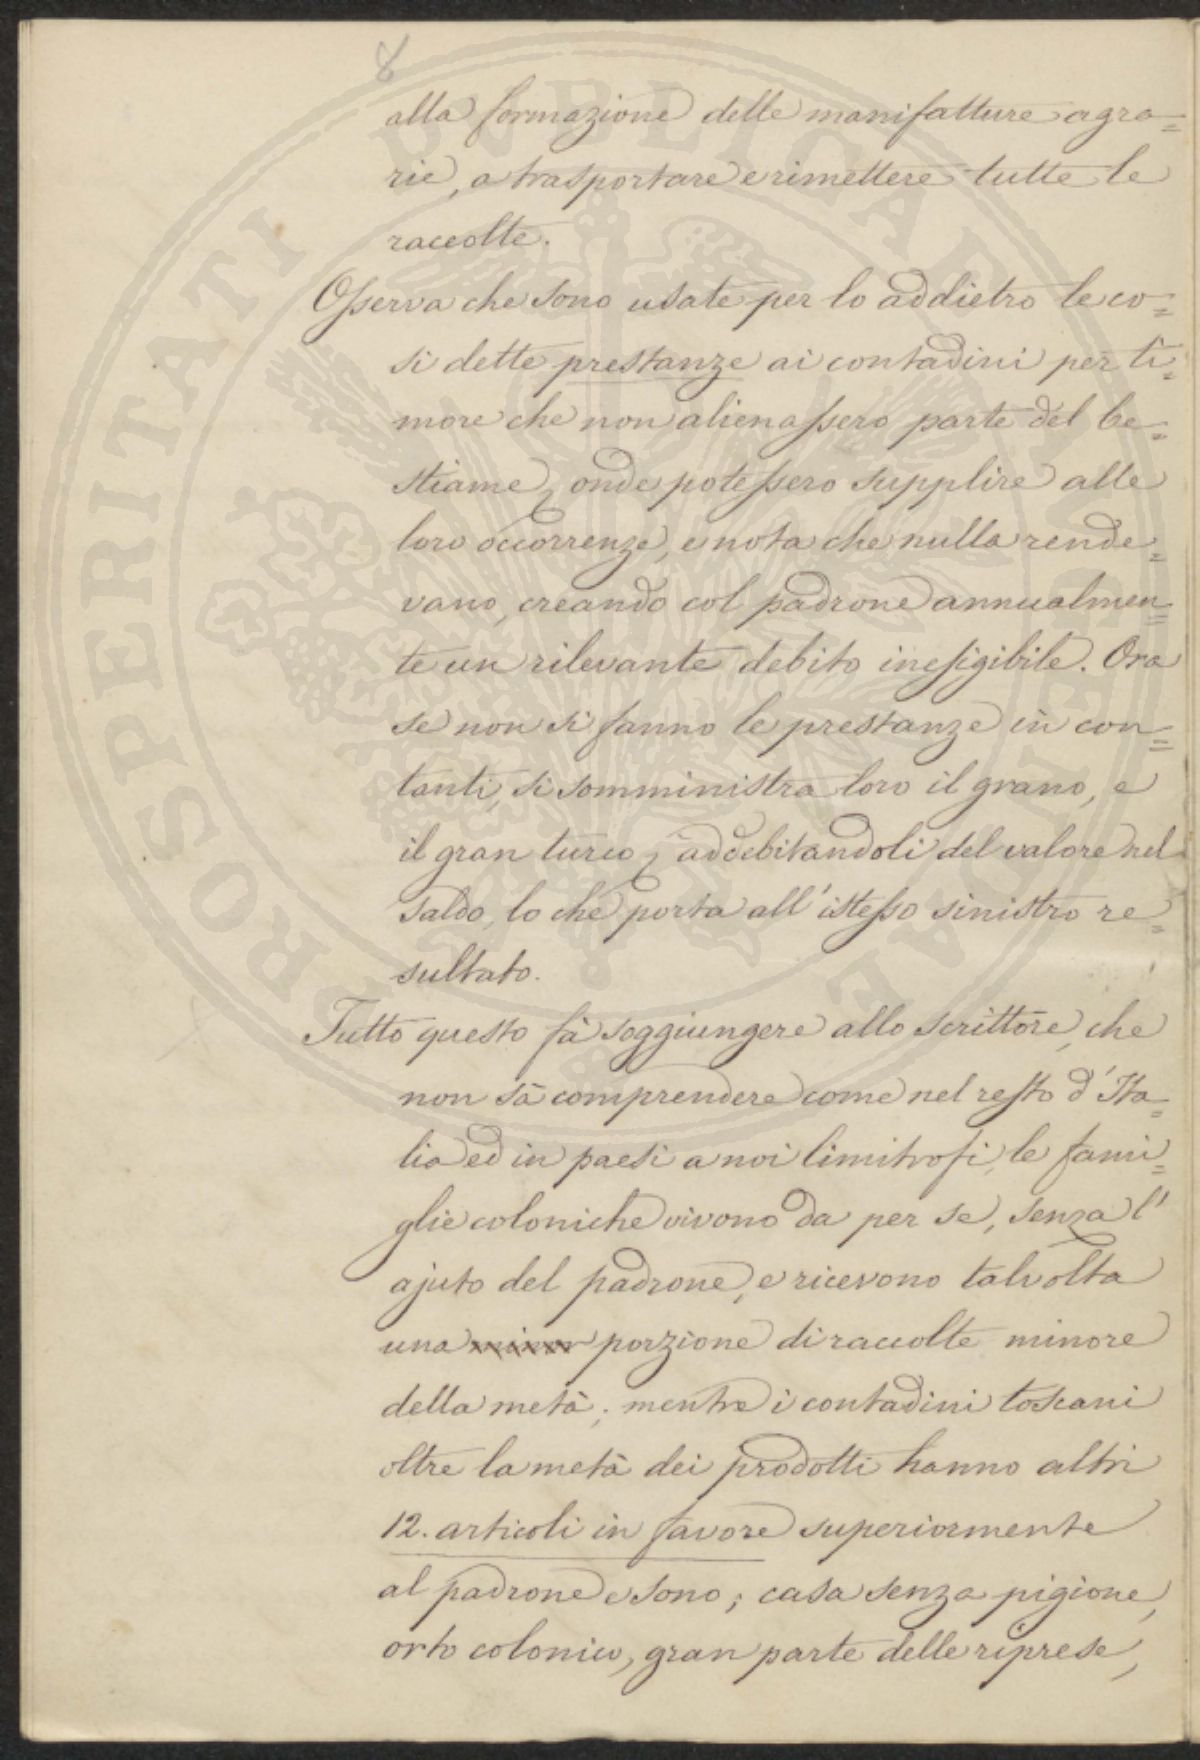 8
alla formazione delle manifatture agra=
rie, a trasportare e rimettere tutte le
raccolte.
Osserva che sono usate per lo addietro le co=
si dette prestanze ai contadini per ti=
more che non alienassero parte del be=
stiame, onde potessero supplire alle
loro occorrenze, e nota che nulla rende=
vano, creando col padrone annualmen=
te un rilevante debito inesigibile. Ora
se non si fanno le prestanze in con=
tanti, si somministra loro il grano, e
il gran turco, addebitandoli del valore nel
saldo, lo che porta all'istesso sinistro re=
sultato.
Tutto questo fà soggiungere allo scrittore, che
non sà comprendere come nel resto d'Ita=
lia ed in paesi a noi limitrofi, le fami=
glie coloniche vivono da per se, senza l'
ajuto del padrone, e ricevono talvolta
una minor porzione di raccolte minore
della metà; mentre i contadini toscani
oltre la metà dei prodotti hanno altri
12. articoli in favore superiormente
al padrone e sono; casa senza pigione,
orto colonico, gran parte delle riprese,
PROSPERITATI PUBLICAE AUGENDAE